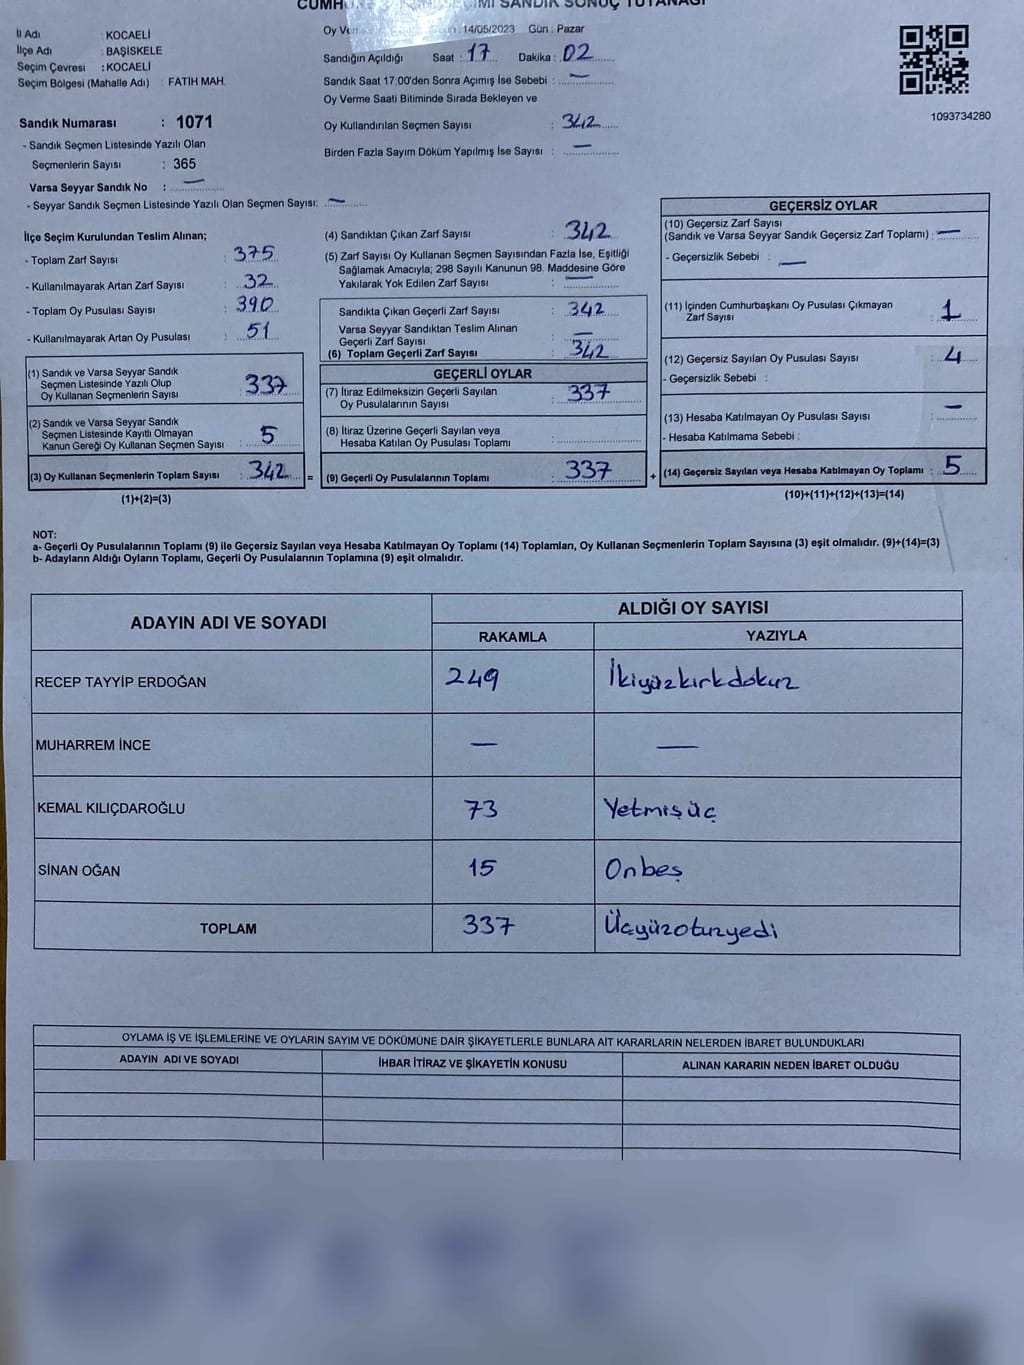 SANDIK SONUÇ TUTANAĞI
İl Adı : KOCAELİ
İlçe Adı : BAŞİSKELE
Seçim Çevresi : KOCAELİ
Seçim Bölgesi (Mahalle Adı) : FATİH MAH.
Sandık Numarası : 1071
- Sandık Seçmen Listesinde Yazılı Olan
Seçmenlerin Sayısı : 365
Varsa Seyyar Sandık No : —
- Seyyar Sandık Seçmen Listesinde Yazılı Olan Seçmen Sayısı: —
Oy 14/05/2023 Gün : Pazar
Sandığın Açıldığı Saat : 17 Dakika : 02
Sandık Saat 17:00'den Sonra Açımış İse Sebebi : —
Oy Verme Saati Bitiminde Sırada Bekleyen ve
Oy Kullandırılan Seçmen Sayısı : 342
Birden Fazla Sayım Döküm Yapılmış İse Sayısı : —
1093734280
İlçe Seçim Kurulundan Teslim Alınan;
- Toplam Zarf Sayısı : 375
- Kullanılmayarak Artan Zarf Sayısı : 32
- Toplam Oy Pusulası Sayısı : 390
- Kullanılmayarak Artan Oy Pusulası : 51
(1) Sandık ve Varsa Seyyar Sandık
Seçmen Listesinde Yazılı Olup
Oy Kullanan Seçmenlerin Sayısı : 337
(2) Sandık ve Varsa Seyyar Sandık
Seçmen Listesinde Kayıtlı Olmayan
Kanun Gereği Oy Kullanan Seçmen Sayısı : 5
(3) Oy Kullanan Seçmenlerin Toplam Sayısı : 342 =
(1)+(2)=(3)
(4) Sandıktan Çıkan Zarf Sayısı : 342
(5) Zarf Sayısı Oy Kullanan Seçmen Sayısından Fazla İse, Eşitliği
Sağlamak Amacıyla; 298 Sayılı Kanunun 98. Maddesine Göre
Yakılarak Yok Edilen Zarf Sayısı : —
Sandıkta Çıkan Geçerli Zarf Sayısı : 342
Varsa Seyyar Sandıktan Teslim Alınan
Geçerli Zarf Sayısı : —
(6) Toplam Geçerli Zarf Sayısı : 342
GEÇERLİ OYLAR
(7) İtiraz Edilmeksizin Geçerli Sayılan
Oy Pusulalarının Sayısı : 337
(8) İtiraz Üzerine Geçerli Sayılan veya
Hesaba Katılan Oy Pusulası Toplamı :
(9) Geçerli Oy Pusulalarının Toplamı : 337 +
GEÇERSİZ OYLAR
(10) Geçersiz Zarf Sayısı
(Sandık ve Varsa Seyyar Sandık Geçersiz Zarf Toplamı) : —
- Geçersizlik Sebebi : —
(11) İçinden Cumhurbaşkanı Oy Pusulası Çıkmayan
Zarf Sayısı : 1
(12) Geçersiz Sayılan Oy Pusulası Sayısı : 4
- Geçersizlik Sebebi :
(13) Hesaba Katılmayan Oy Pusulası Sayısı : —
- Hesaba Katılmama Sebebi :
(14) Geçersiz Sayılan veya Hesaba Katılmayan Oy Toplamı : 5
(10)+(11)+(12)+(13)=(14)
NOT:
a- Geçerli Oy Pusulalarının Toplamı (9) ile Geçersiz Sayılan veya Hesaba Katılmayan Oy Toplamı (14) Toplamları, Oy Kullanan Seçmenlerin Toplam Sayısına (3) eşit olmalıdır. (9)+(14)=(3)
b- Adayların Aldığı Oyların Toplamı, Geçerli Oy Pusulalarının Toplamına (9) eşit olmalıdır.
ADAYIN ADI VE SOYADI ALDIĞI OY SAYISI
RAKAMLA YAZIYLA
RECEP TAYYİP ERDOĞAN 249 İkiyüzkırkdokuz
MUHARREM İNCE — —
KEMAL KILIÇDAROĞLU 73 Yetmişüç
SİNAN OĞAN 15 Onbeş
TOPLAM 337 Üçyüzotuzyedi
OYLAMA İŞ VE İŞLEMLERİNE VE OYLARIN SAYIM VE DÖKÜMÜNE DAİR ŞİKAYETLERLE BUNLARA AİT KARARLARIN NELERDEN İBARET BULUNDUKLARI
ADAYIN ADI VE SOYADI İHBAR İTİRAZ VE ŞİKAYETİN KONUSU ALINAN KARARIN NEDEN İBARET OLDUĞU